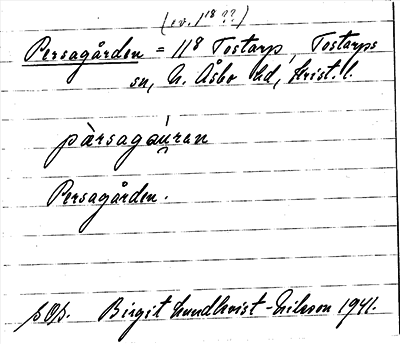 (ev. 1¹⁸ ??)
Persagården = 11⁸ Tostarp, Tostarps
sn, N. Åsbo hd, Krist. l.
pàrsagáu̯ran
Persagården.
Birgit Lundkvist-Nilsson 1941.